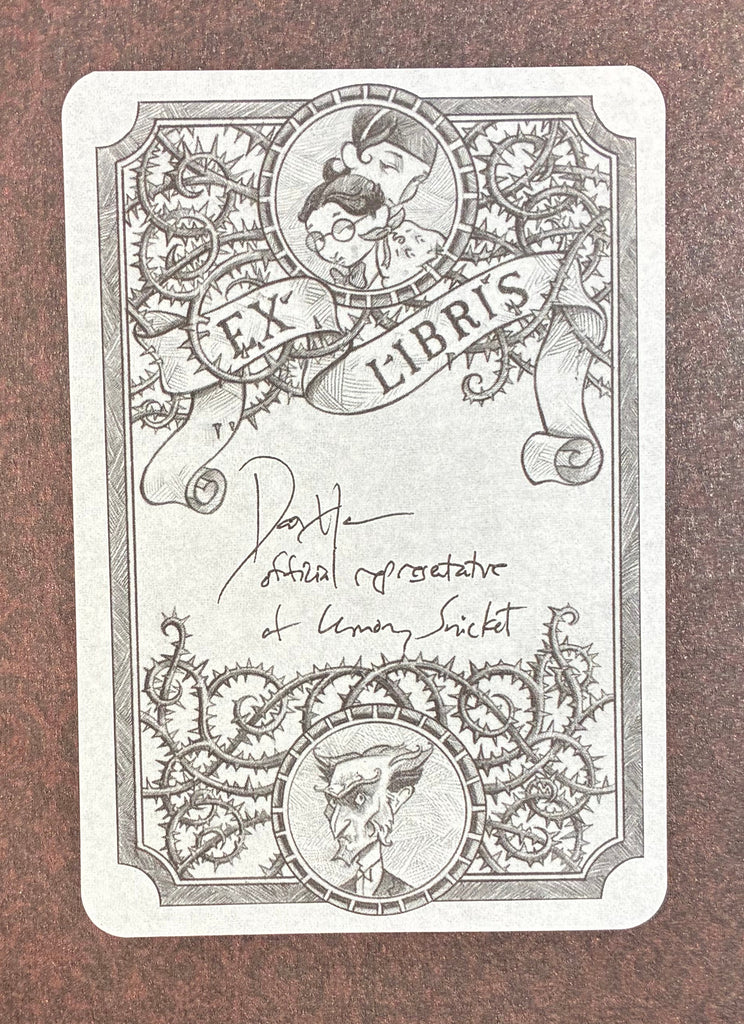 EX LIBRIS
official representative
of Lemony Snicket